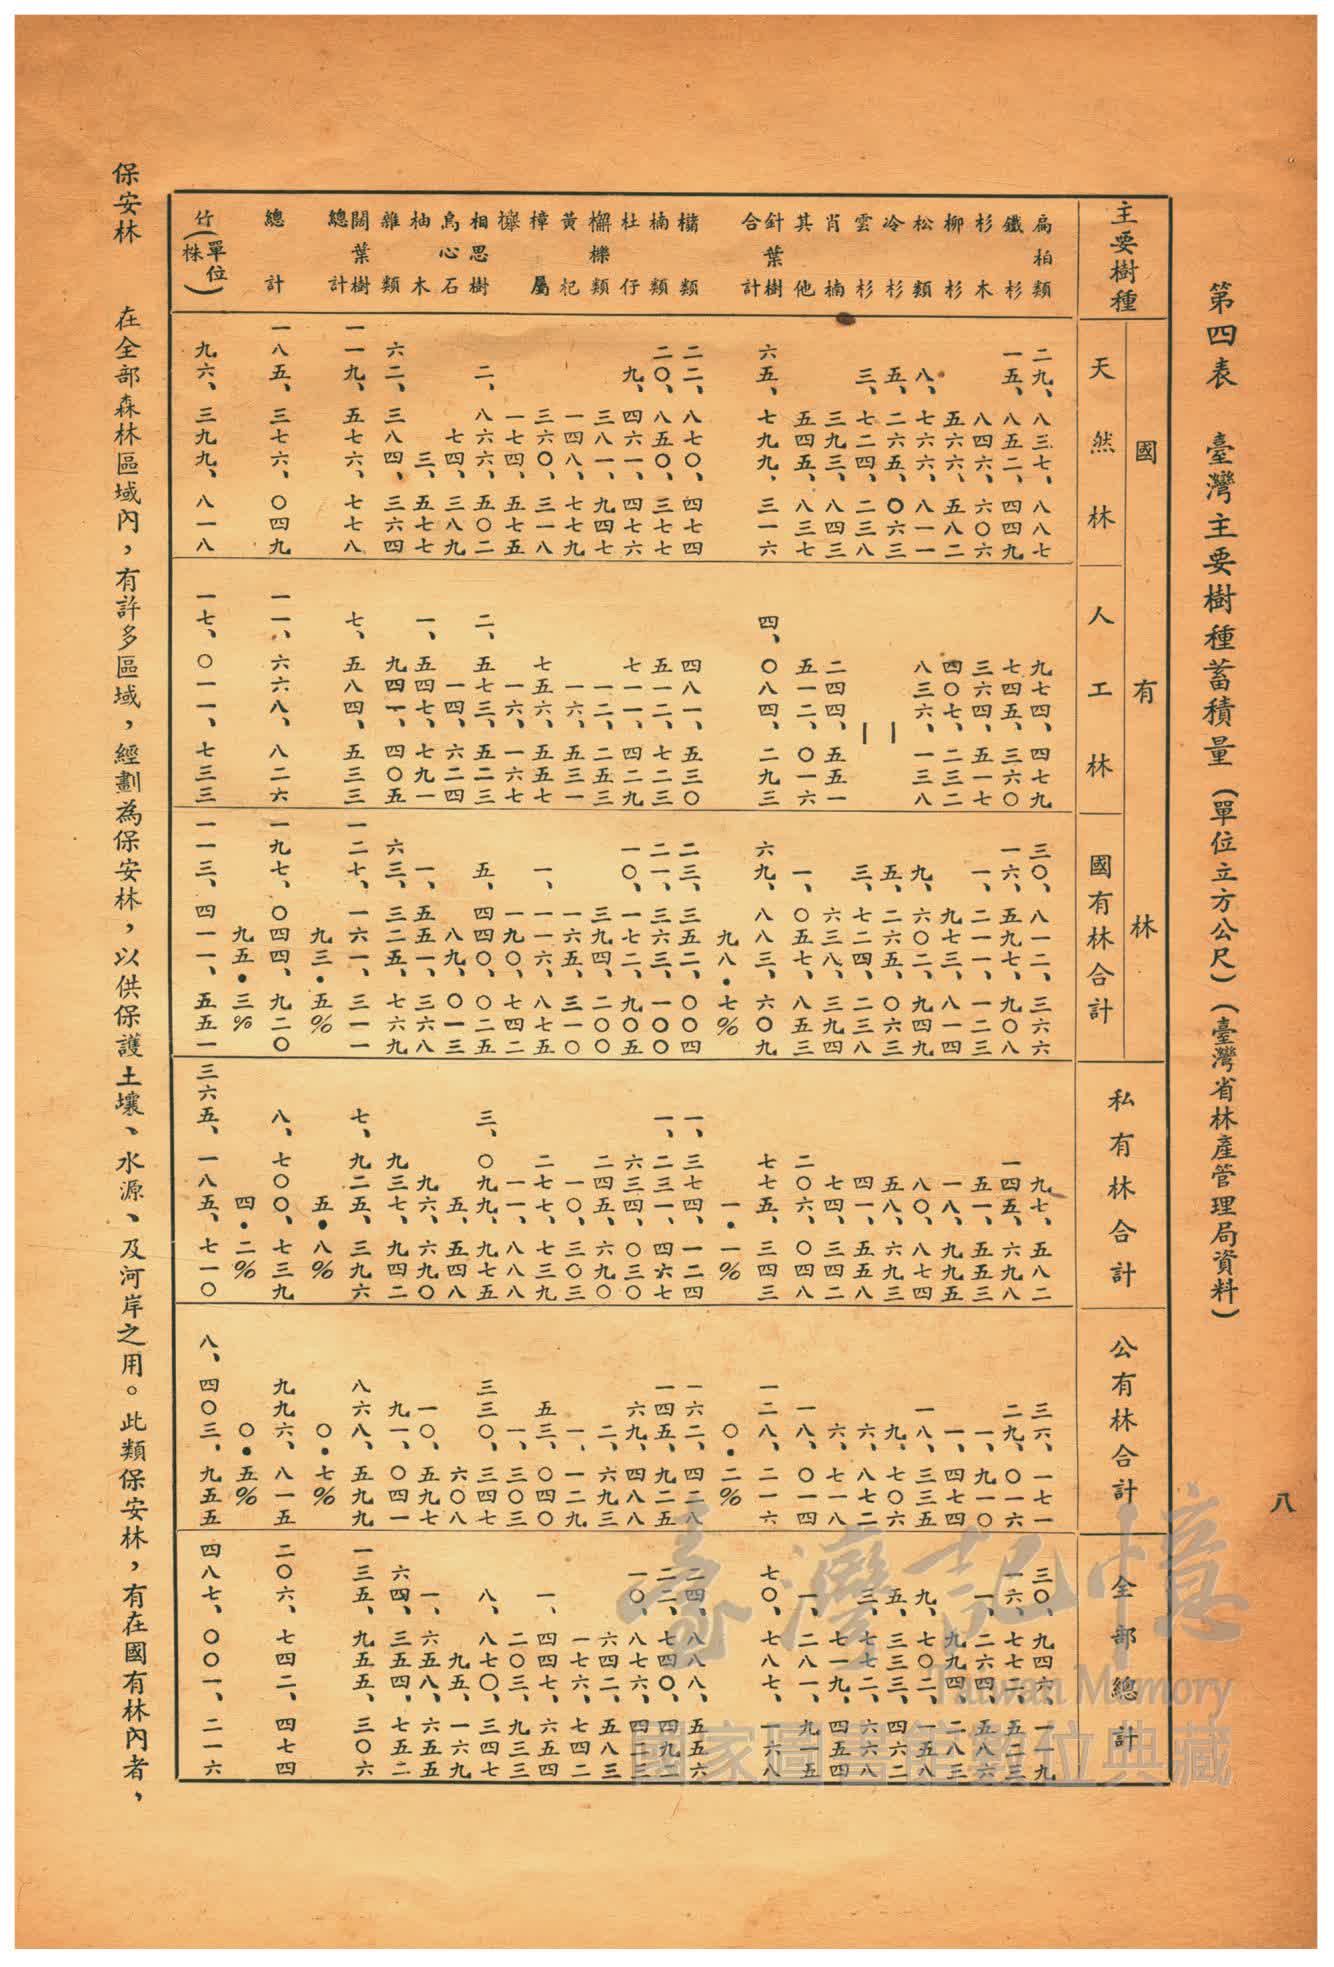 八
第四表　臺灣主要樹種蓄積量（單位立方公尺）（臺灣省林產管理局資料）
主要樹種　國有林　天然林　人工林　國有林合計　私有林合計　公有林合計　全部總計
扁柏類　二九、八三七、八八七　九七四、四七九　三〇、八一二、三六六　九七、五八二　三六、一七一　三〇、九四六、一一九
鐵杉　一五、八五二、四四九　七四五、三六〇　一六、五九七、九〇八　一四五、六九八　二九、〇一六　一六、七七二、五二三
杉木　八四六、六〇六　三六四、五一七　一、二一一、一二三　五一、五五三　一、九一〇　一、二六四、五八六
柳杉　五六六、五八二　四〇七、二三二　九七三、八一四　一八、九九五　一、四七四　九九四、二八三
松類　八、七六六、八一一　八三六、一三八　九、六〇二、九四九　八〇、八七四　一八、三三五　九、七〇二、一五八
冷杉　五、二六五、〇六三　—　五、二六五、〇六三　五八、六九三　九、七〇六　五、三三三、四六二
雲杉　三、七二四、二三八　—　三、七二四、二三八　四一、五五八　六、八七二　三、七七二、六六八
肖楠　三九三、八四三　二四四、五五一　六三八、三九四　七四、三四二　六、七一八　七一九、四五四
其他　五四五、八三七　五一二、〇一六　一、〇五七、八五三　二〇六、〇四八　一八、〇一四　一、二八一、九一五
針葉樹合計　六五、七九九、三一六　四、〇八四、二九三　六九、八八三、六〇九　七七五、三四三　一二八、二一六　七〇、七八七、一六八
九八•七%　一•一%　〇•二%
櫧類　二二、八七〇、四七四　四八一、五三〇　二三、三五二、〇〇四　一、三七四、一二四　一六二、四二八　二四、八八八、五五六
楠類　二〇、八五〇、三七七　五一二、七二三　二一、三六三、一〇〇　一、二三一、四六七　一四五、九二五　二二、七四〇、四九二
杜仔　九、四六一、四七六　七一一、四二九　一〇、一七二、九〇五　六三四、〇三〇　六九、四八八　一〇、八七六、四二三
槲櫟類　三八一、九四七　一二、二五三　三九四、二〇〇　二四五、六九〇　二、六九三　六四二、五八三
黃杞　一四八、七七九　一六、五三一　一六五、三一〇　一〇、三〇三　一、一二九　一七六、七四二
樟屬　三六〇、三一八　七五六、五五七　一、一一六、八七五　二七七、七三九　五三、〇四〇　一、四四七、六五四
櫸　一七四、五七五　一六、一六七　一九〇、七四二　一一、八八八　一、三〇三　二〇三、九三三
相思樹　二、八六六、五〇二　二、五七三、五二三　五、四四〇、〇二五　三、〇九九、九七五　三三〇、三四七　八、八七〇、三四七
烏心石　七四、三八九　一四、六二四　八九、〇一三　五、五四八　六〇八　九五、一六九
柚木　三、五七七　一、五四七、七九一　一、五五一、三六八　九六、六九〇　一〇、五九七　一、六五八、六五五
雜類　六二、三八四、三六四　九四一、四〇五　六三、三二五、七六九　九三七、九四二　九一、〇四一　六四、三五四、七五二
闊葉樹總計　一一九、五七六、七七八　七、五八四、五三三　一二七、一六一、三一一　七、九二五、三九六　八六八、五九九　一三五、九五五、三〇六
九三•五%　五•八%　〇•七%
總計　一八五、三七六、〇四九　一一、六六八、八二六　一九七、〇四四、九二〇　八、七〇〇、七三九　九九六、八一五　二〇六、七四二、四七四
九五•三%　四•二%　〇•五%
竹（單位株）　九六、三九九、八一八　一七、〇一一、七三三　一一三、四一一、五五一　三六五、一八五、七一〇　八、四〇三、九五五　四八七、〇〇一、二一六
保安林　在全部森林區域內，有許多區域，經劃為保安林，以供保護土壤、水源、及河岸之用。此類保安林，有在國有林內者，
臺灣記憶
Taiwan Memory
國家圖書館數位典藏